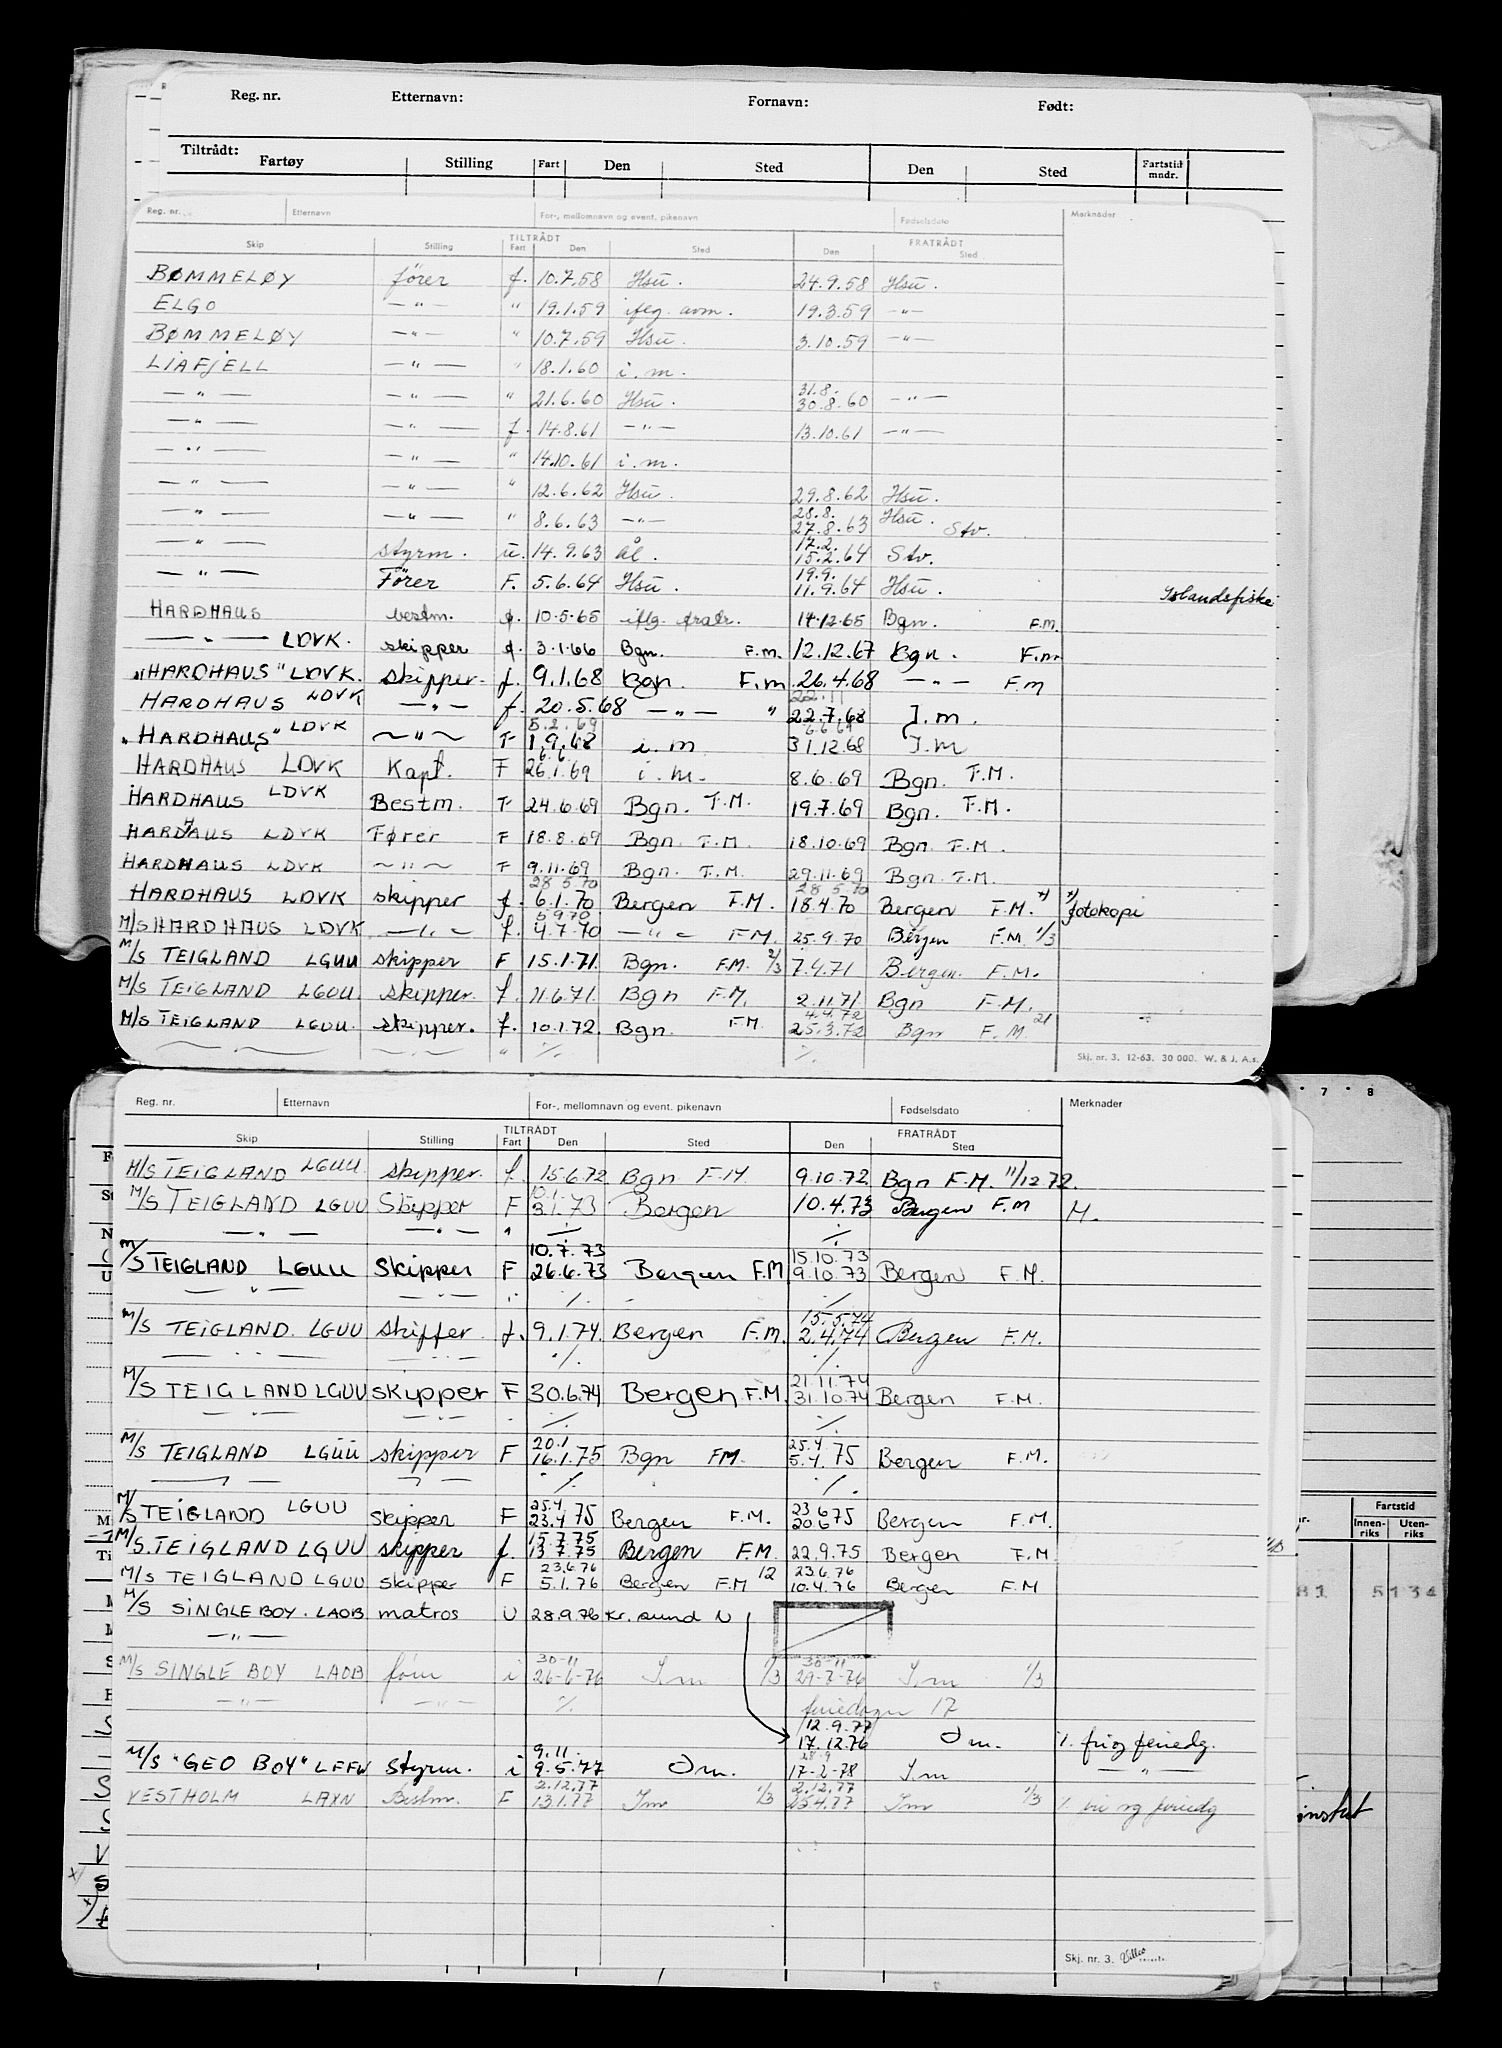 Reg. nr. Etternavn: Fornavn: Født:
Tiltrådt: Fartøy Stilling Fart Den Sted Den Sted Fartstid mndr.
Reg. nr. Etternavn For-, mellomnavn og event. pikenavn Fødselsdato Merknader
TILTRÅDT FRATRÅDT
Skip Stilling Fart Den Sted Den Sted
BØMMELØY fører f. 10.7.58 Hsu. 24.9.58 Hsu.
ELGO —"— " 19.1.59 iflg. avm. 19.3.59 —"—
BØMMELØY —"— " 10.7.59 Hsu. 3.10.59 —"—
LIAFJELL —"— " 18.1.60 i.m.
—"— —"— " 21.6.60 Hsu. 31.8. 30.8.60 —"—
—"— —"— f. 14.8.61 —"— 13.10.61 —"—
—"— —"— " 14.10.61 i.m.
—"— —"— " 12.6.62 Hsu. 29.8.62 Hsu.
—"— —"— " 8.6.63 —"— 28.8. 27.8.63 Hsu. Stv.
—"— styrm. u. 14.9.63 Ål. 17.2. 15.2.64 Stv.
—"— Fører F. 5.6.64 Hsu. 19.9. 11.9.64 Hsu. Islandsfiske
HARDHAUS bestm. f. 10.5.65 iflg. fratr. 14.12.65 Bgn. F.M.
—"— LDVK. skipper f. 3.1.66 Bgn. F.M. 12.12.67 Bgn. F.m
"HARDHAUS" LDVK. skipper. f. 9.1.68 Bgn. F.m 26.4.68 —"— F.M
HARDHAUS LDVK —"— f. 20.5.68 —"— " 22.11 22.7.68 I.m.
"HARDHAUS" LDVK ~"~ F 5.2.69 1.9.68 i.m 6.6.69 31.12.68 I.m
HARDHAUS LDVK Kapt. F 6.6. 26.1.69 i.m. 8.6.69 Bgn. F.M.
HARDHAUS LDVK Bestm. F 24.6.69 Bgn. F.M. 19.7.69 Bgn. F.M.
HARDHAUS LDVK Fører F 18.8.69 Bgn. F.M. 18.10.69 Bgn. F.M.
HARDHAUS LDVK ~"~ F 9.11.69 Bgn. F.M. 29.11.69 Bgn. F.M.
HARDHAUS LDVK skipper f. 28 5.70 6.1.70 Bergen F.M. 28 5.70 18.4.70 Bergen F.M. x) x) fotokopi
M/S HARDHAUS LDVK —"— f. 5970 4.7.70 —"— F.M. 25.9.70 Bergen F.M. 1/3
M/S TEIGLAND LGUU skipper F 15.1.71. Bgn. F.M. 2/3 7.4.71 Bergen. F.M.
M/S TEIGLAND LGUU. skipper. f. 11.6.71. Bgn F.M. 2.11.71 Bgn F.M.
M/S TEIGLAND LGUU. skipper. f. 10.1.72. Bgn. F.M. 4.4.72 25.3.72 Bgn F.M. 21
—"— —"— " ·/. ·/.
Skj. nr. 3. 12-63. 30 000. W. & J. A.s.
Reg. nr. Etternavn For-, mellomnavn og event. pikenavn Fødselsdato Merknader
TILTRÅDT FRATRÅDT
Skip Stilling Fart Den Sted Den Sted
M/S TEIGLAND LGUU. skipper. f. 15.6.72 Bgn F.M 9.10.72. Bgn F.M. 11/12.72.
M/S TEIGLAND LGUU Skipper F 10.1. 3.1.73 Bergen 10.4.73 Bergen F.M M.
—"— —"— " ·/. ·/.
M/S TEIGLAND LGUU Skipper F 10.7.73 26.6.73 Bergen F.M. 15.10.73 9.10.73 Bergen F.M.
—"— —"— " ·/. ·/.
M/S TEIGLAND. LGUU Skipper f. 9.1.74. Bergen F.M. 15.5.74 2.4.74 Bergen F.M.
—"— —"— ·/. ·/.
M/S TEIGLAND LGUU skipper F 30.6.74 Bergen F.M. 21.11.74 31.10.74 Bergen F.M.
—"— —"— ·/. ·/.
M/S TEIGLAND LGUU skipper F 20.1 16.1.75 Bgn F.M. 25.4. 5.4.75 Bergen F.M.
—"— —"— ·/. ·/.
M/S TEIGLAND LGUU skipper F 25.4. 23.4 75 Bergen F.M. 23 675 20.6 Bergen F.M.
M/S. TEIGLAND LGUU skipper f. 15.7.75 13.7.75 Bergen F.M. 22.9.75 Bergen F.M
M/S TEIGLAND LGUU skipper F 23.6.76 5.1.76 Bergen F.M 12 23.6.76 10.4.76 Bergen F.M
M/S SINGLE BOY. LAOB matros U 28.9.76 Kr. sund N
—"—
M/S SINGLE BOY LAOB i 30-11 26-6-76 I.m 1/3 30-11 29-7-76 I.m 1/3
—"— —"— ·/. feriedager 17
12.9.77 17.12.76 I m. ·/. fri og feriedg.
M/S "GEO BOY" LFFW Styrm. i 9.11. 9.5.77 I m. 28.9 17-2-78 I.m —"—
VESTHOLM LAXN Bestm. F 2.12.77 13.1.77 I m 1/3 2.12.77 25.4.77 I m 1/3 ·/. fri og feriedg
Skj. nr. 3.
7 8
Fartstid
Innenriks Utenriks
81 5134